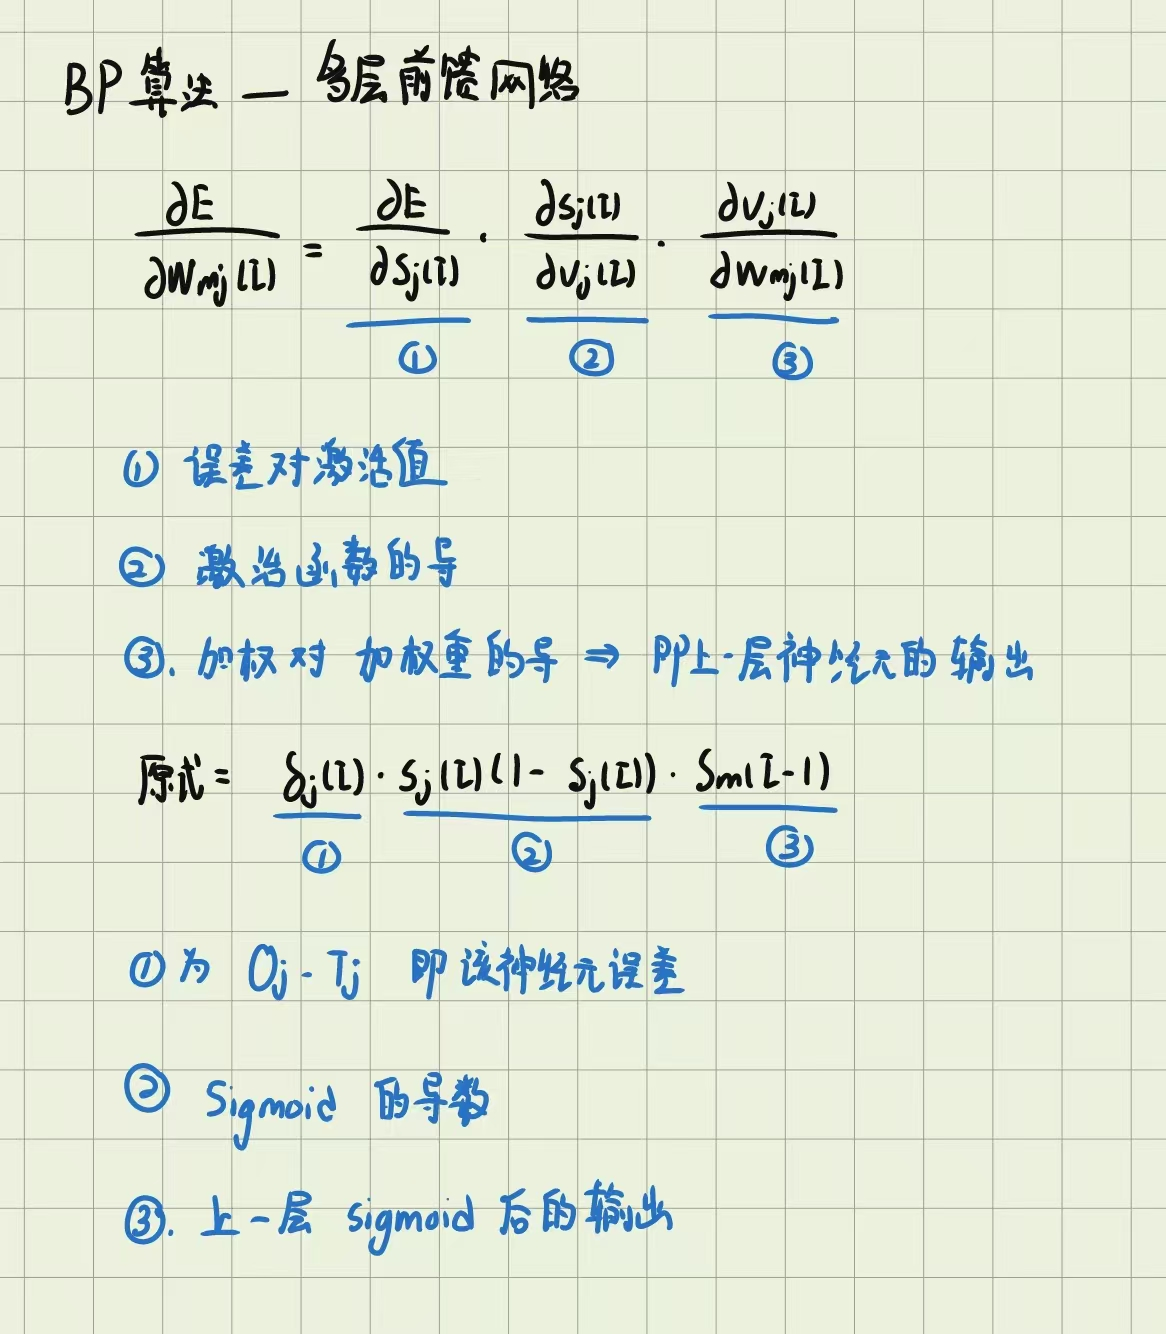 BP算法 — 多层前馈网络
∂E/∂Wmj(l) = ∂E/∂Sj(l) · ∂Sj(l)/∂Vj(l) · ∂Vj(l)/∂Wmj(l)
① ② ③
① 误差对激活值
② 激活函数的导
③. 加权对 加权重的导 ⇒ 即上一层神经元的输出
原式 = δj(l) · Sj(l)(1 - Sj(l)) · Sm(l-1)
① ② ③
①为 Oj - Tj 即该神经元误差
② Sigmoid 的导数
③. 上一层 sigmoid 后的输出